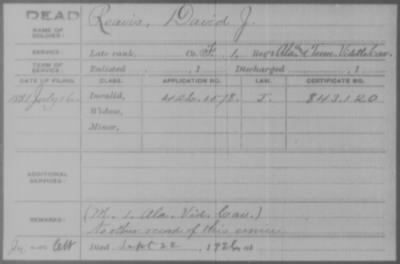 DEAD
NAME OF SOLDIER: Reavis, David J.
SERVICE: Late rank, Co. F, 1, Reg't Ala & Tenn Vidette Cav.
TERM OF SERVICE: Enlisted , 1 Discharged , 1
DATE OF FILING. CLASS. APPLICATION NO. LAW. CERTIFICATE NO.
1881 July 16 Invalid, J. 843.120
Widow,
Minor,
ADDITIONAL SERVICES:
REMARKS: (M. 1. Ala. Vid. Cav.)
No other record of this service
Died Sept 22, 1926, at